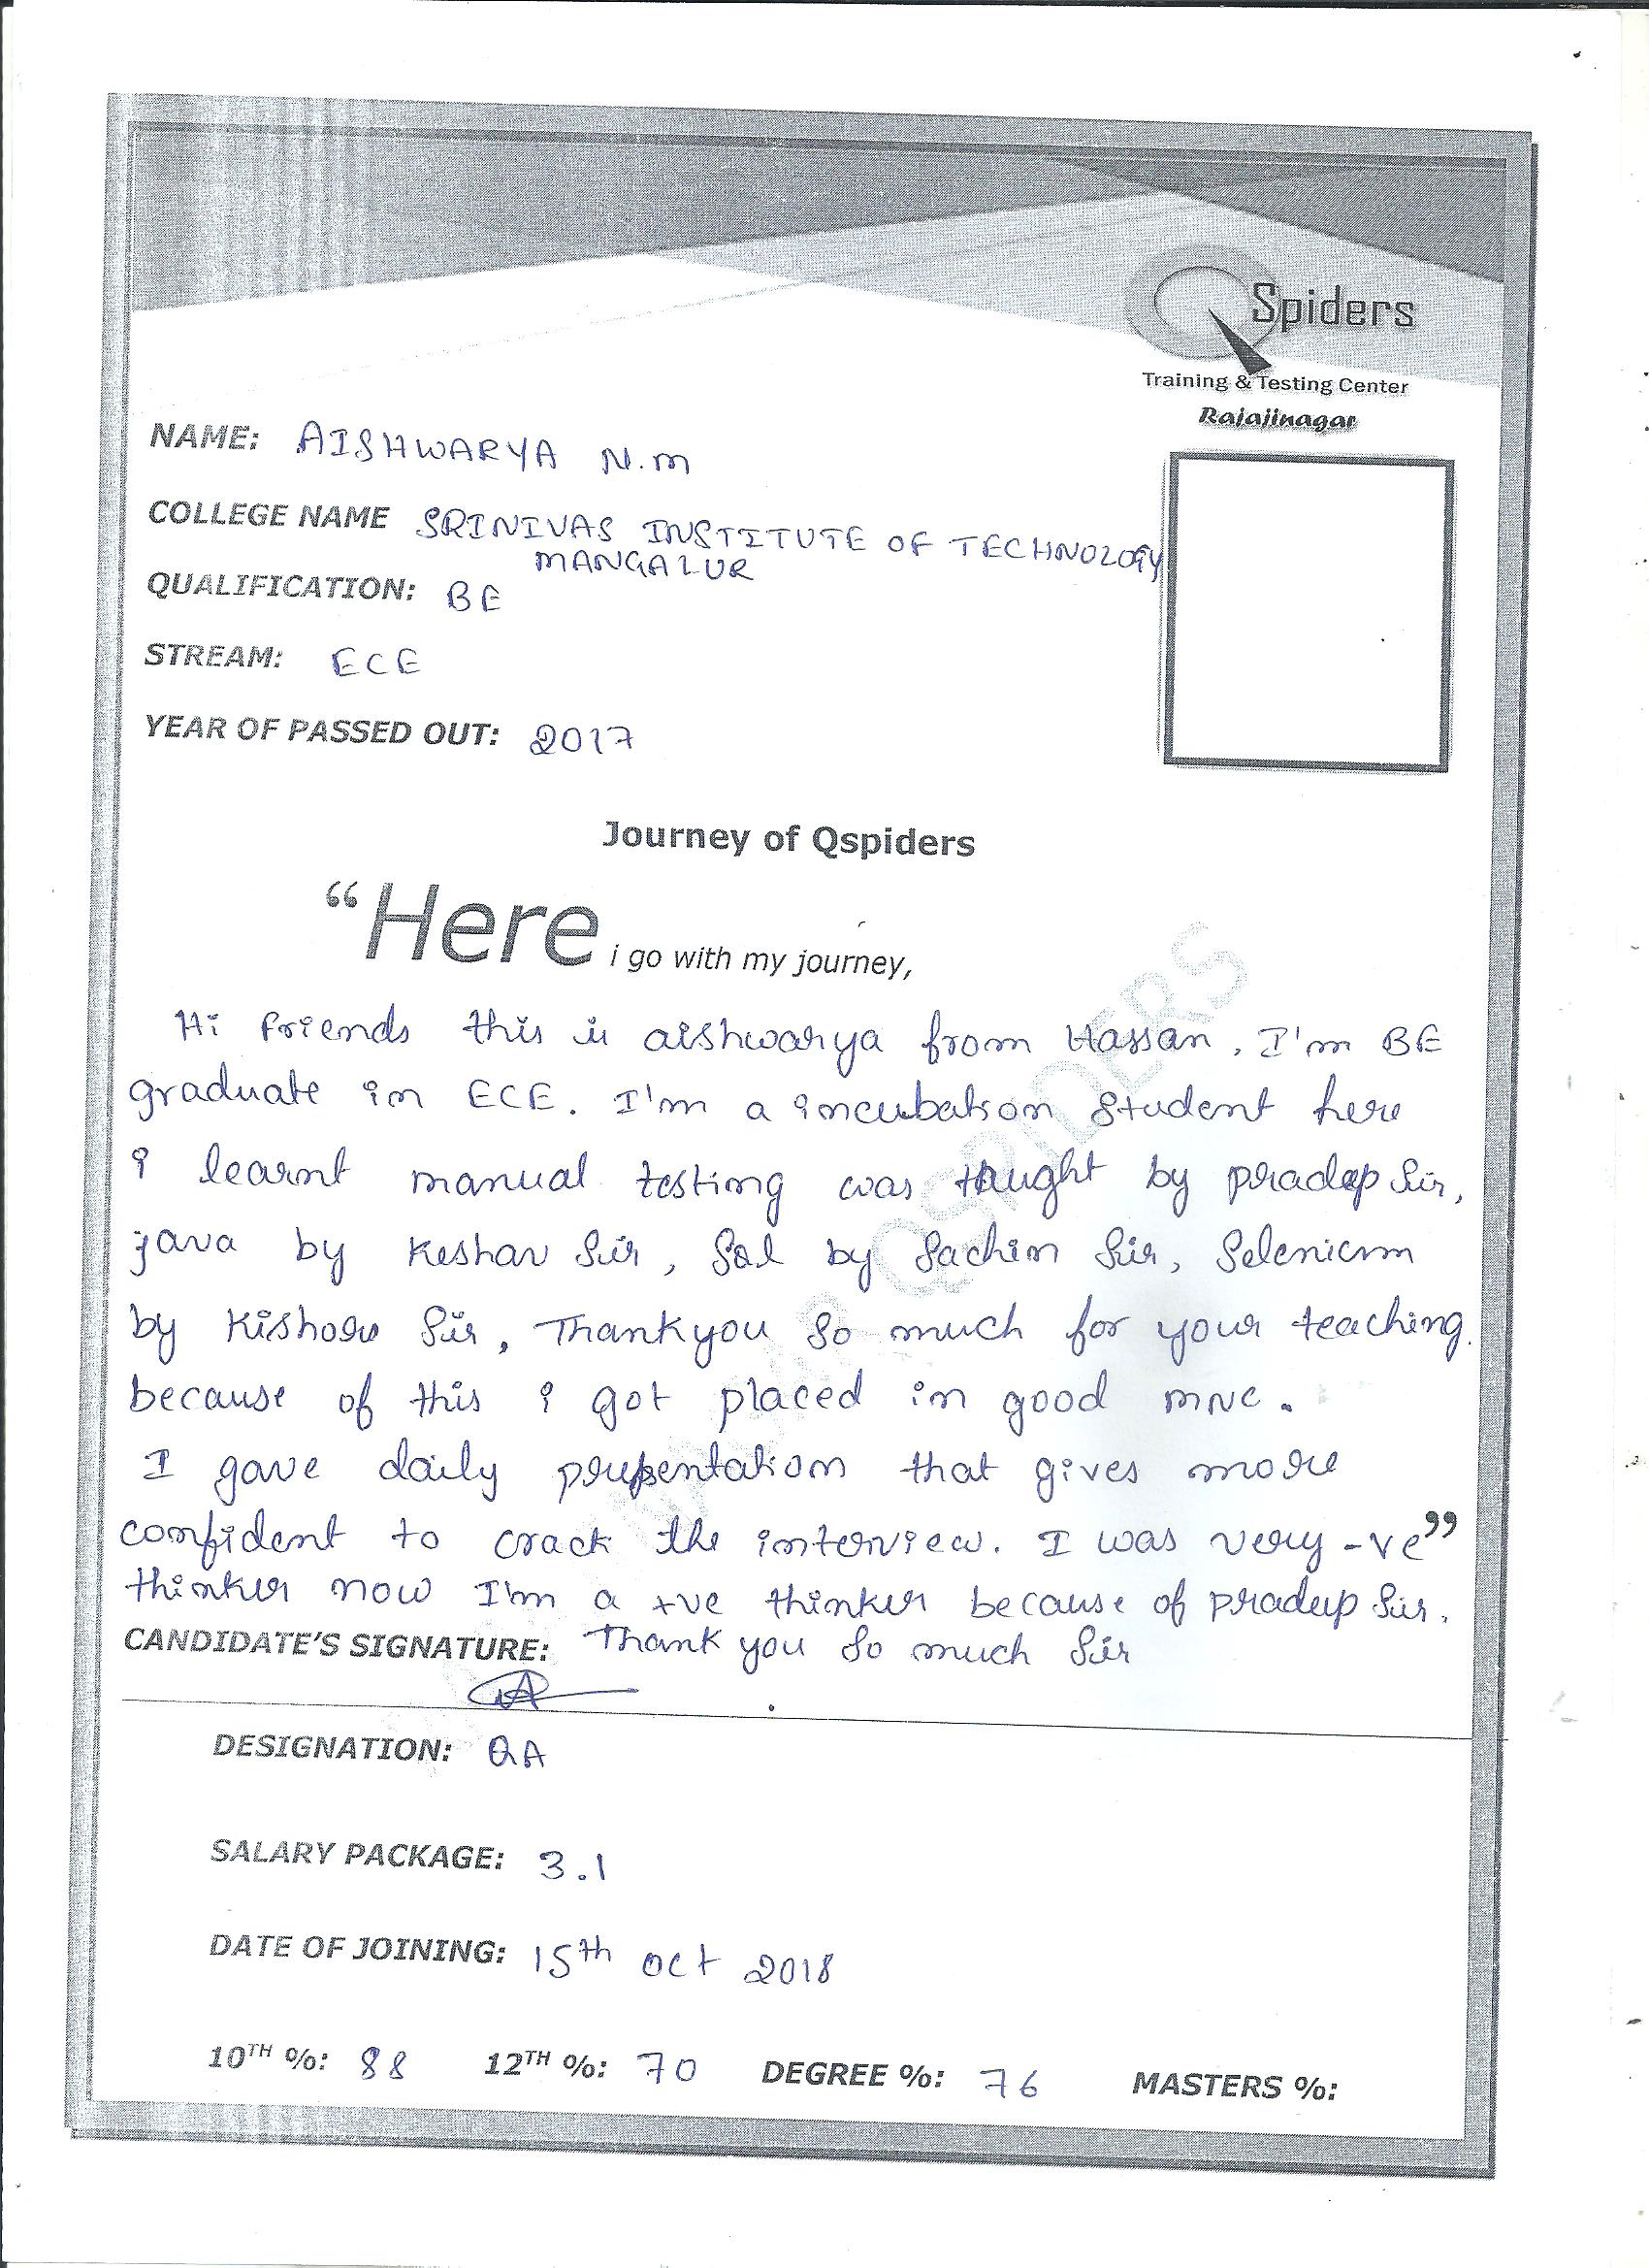 Spiders
Training & Testing Center
Rajajinagar
NAME: AISHWARYA N.M
COLLEGE NAME SRINIVAS INSTITUTE OF TECHNOLOGY
MANGALUR
QUALIFICATION: BE
STREAM: ECE
YEAR OF PASSED OUT: 2017
Journey of Qspiders
“Here i go with my journey,
Hi friends this is aishwarya from Hassan. I'm BE
graduate in ECE. I'm a incubation student here
i learnt manual testing was taught by pradeep sir,
java by Keshav sir, Sql by Sachin sir, Selenium
by Kishore sir. Thankyou so much for your teaching.
because of this i got placed in good mnc.
I gave daily presentation that gives more
confident to crack the interview. I was very -ve”
thinker now I'm a +ve thinker because of pradeep sir.
CANDIDATE'S SIGNATURE: Thank you so much sir
DESIGNATION: QA
SALARY PACKAGE: 3.1
DATE OF JOINING: 15th oct 2018
10TH %: 88 12TH %: 70 DEGREE %: 76 MASTERS %:
QSPIDERS